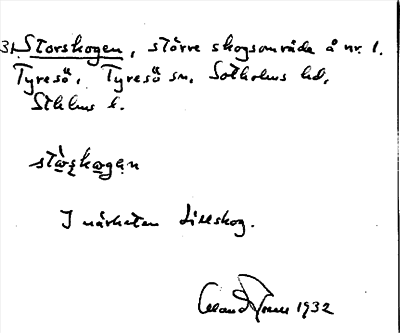 31. Storskogen, större skogsområde å nr. 1.
Tyresö, Tyresö sn, Sotholms hd,
Sthlms l.
stòrskogen
I närheten Lillskog.
1932